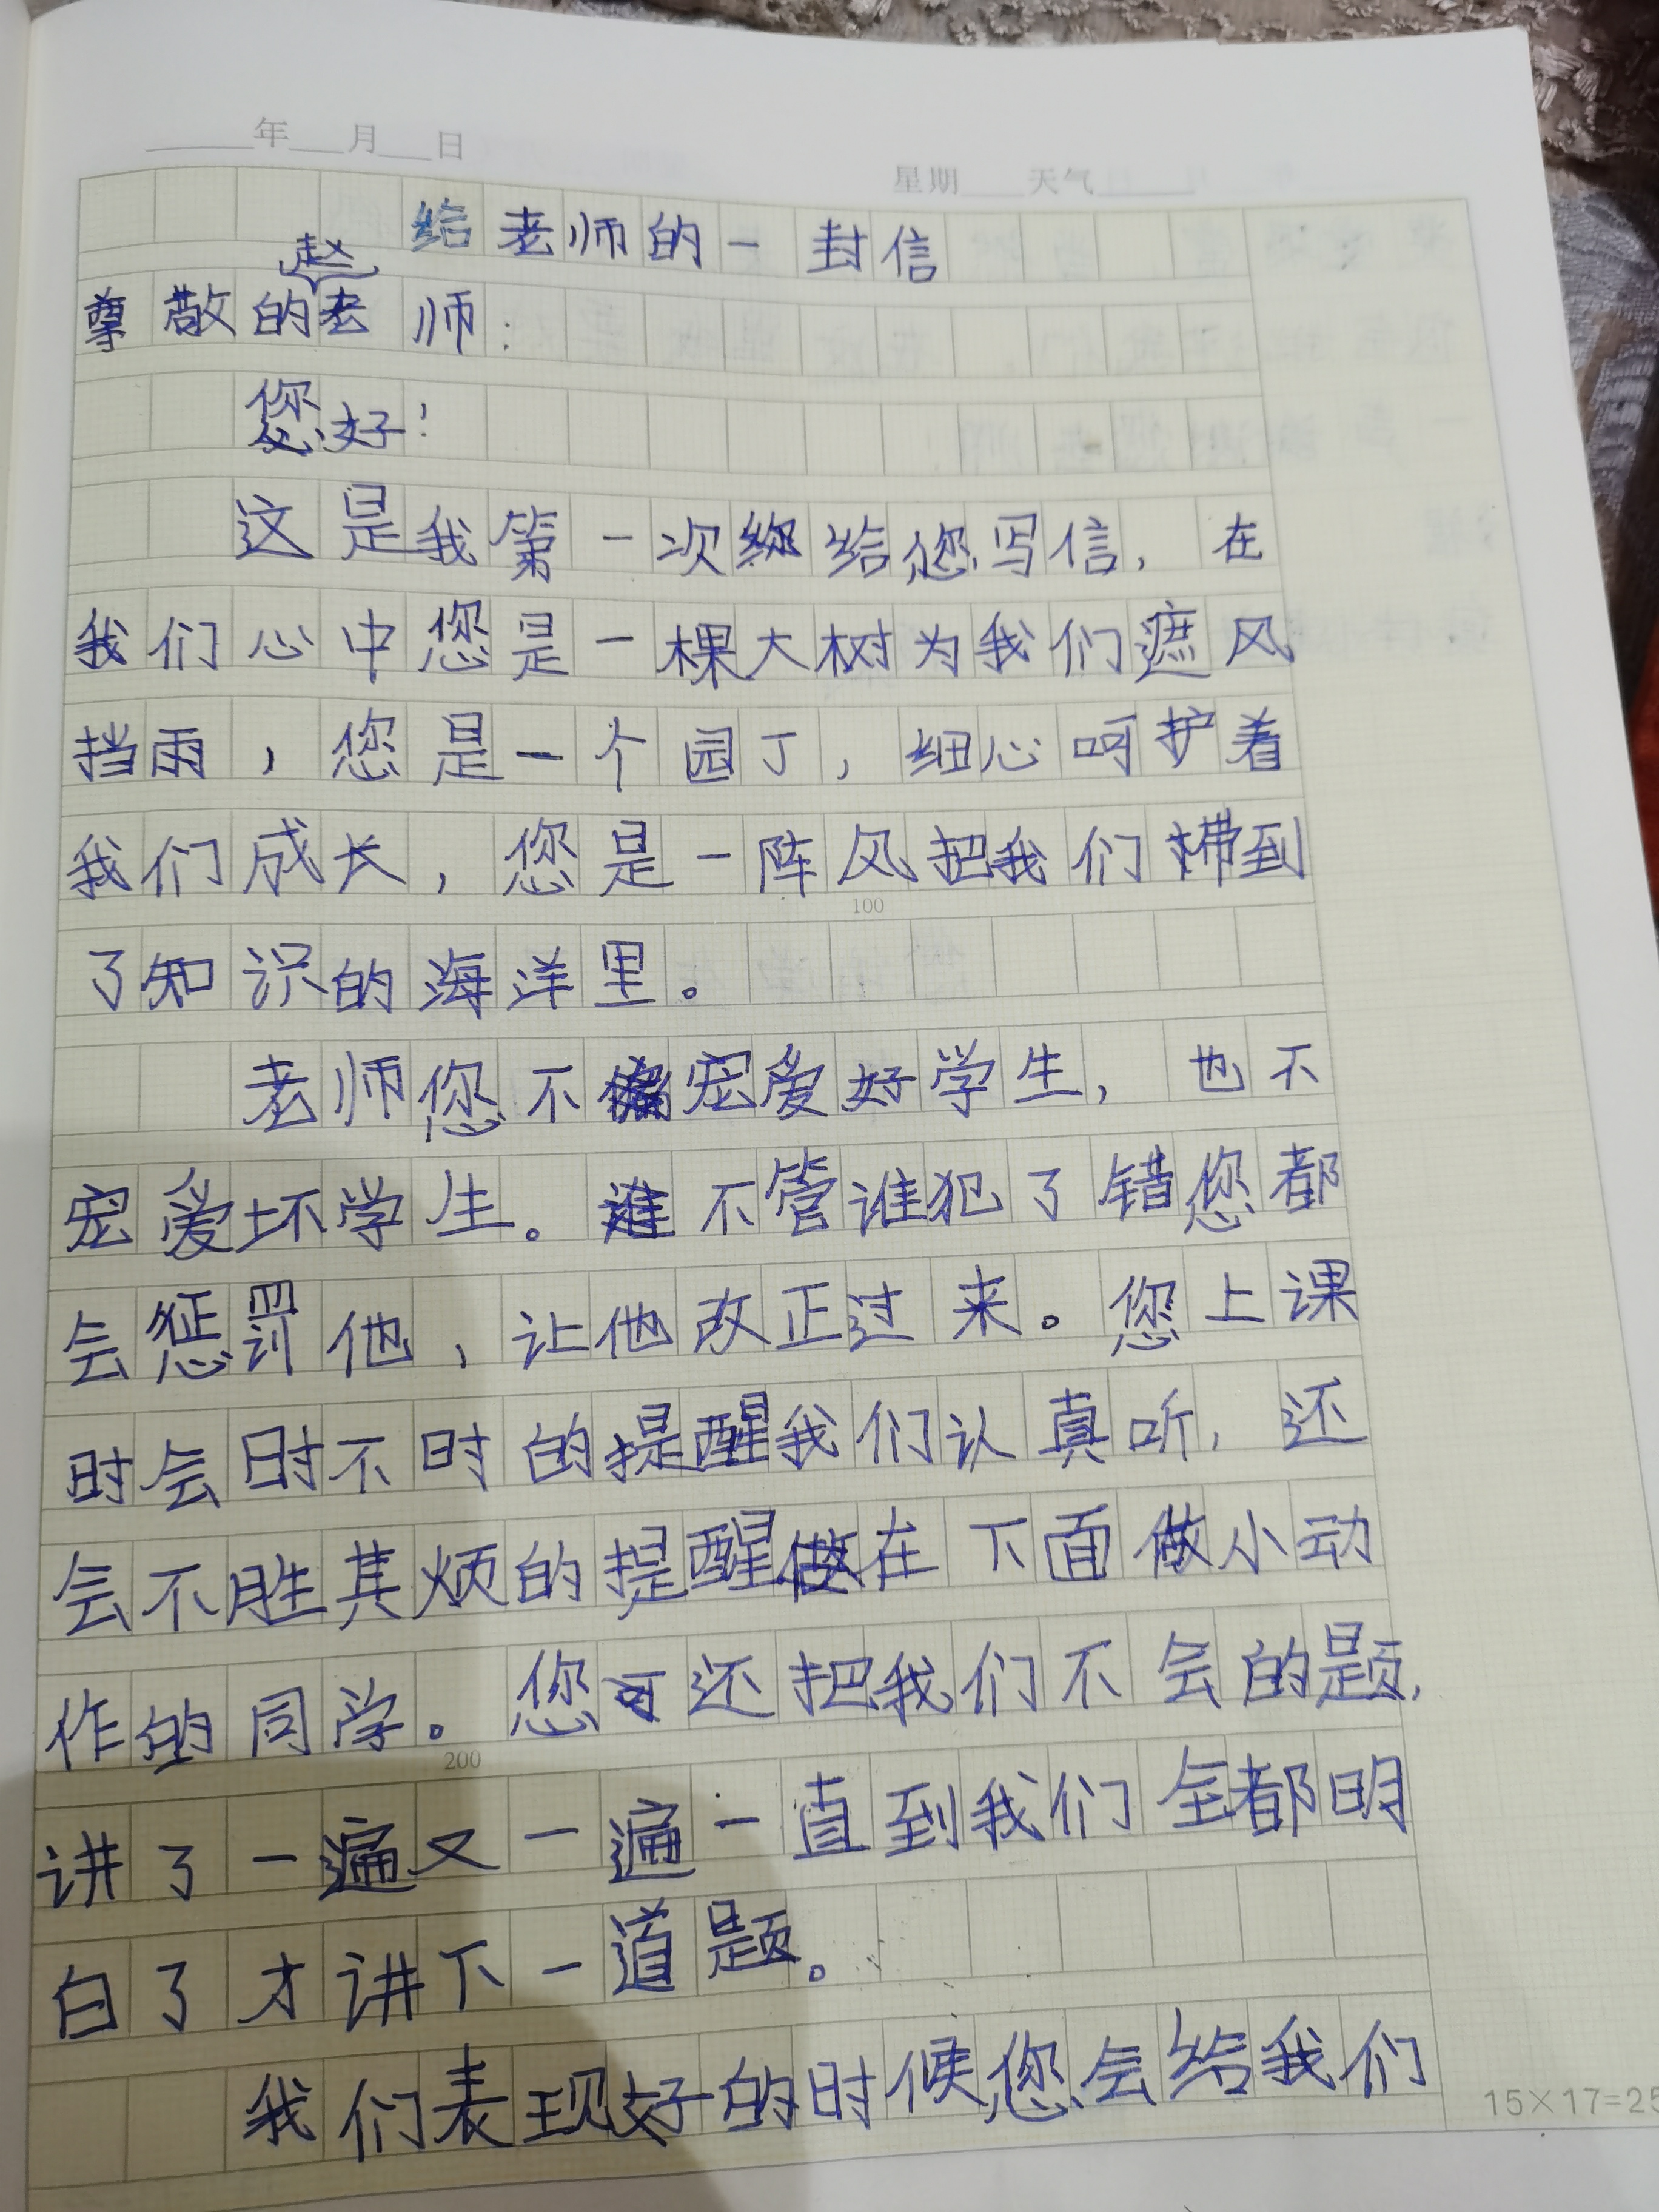 年 月 日
星期 天气
给老师的一封信
赵
尊敬的老师：
您好！
这是我第一次给您写信，在
我们心中您是一棵大树为我们遮风
挡雨，您是一个园丁，细心呵护着
我们成长，您是一阵风把我们拂到
100
了知识的海洋里。
老师您不宠爱好学生，也不
宠爱坏学生。不管谁犯了错您都
会惩罚他，让他改正过来。您上课
时会时不时的提醒我们认真听，还
会不胜其烦的提醒在下面做小动
作的同学。您还把我们不会的题，
200
讲了一遍又一遍一直到我们全都明
白了才讲下一道题。
我们表现好的时候您会给我们
15×17=25